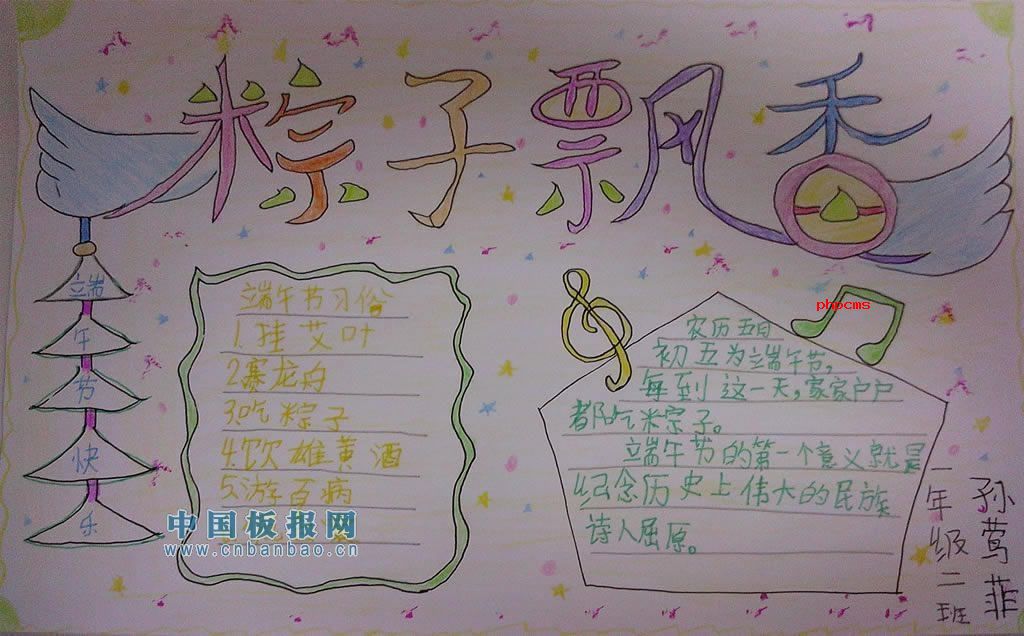 粽子飘香
端
午
节
快
乐
端午节习俗
1.挂艾叶
2.赛龙舟
3.吃粽子
4.饮雄黄酒
5.游百病
中国板报网
www.cnbanbao.cn
phpcms
农历五日
初五为端午节,
每到这一天,家家户户
都吃粽子。
端午节的第一个意义就是
纪念历史上伟大的民族
诗人屈原。
一年级二班
孙莺菲